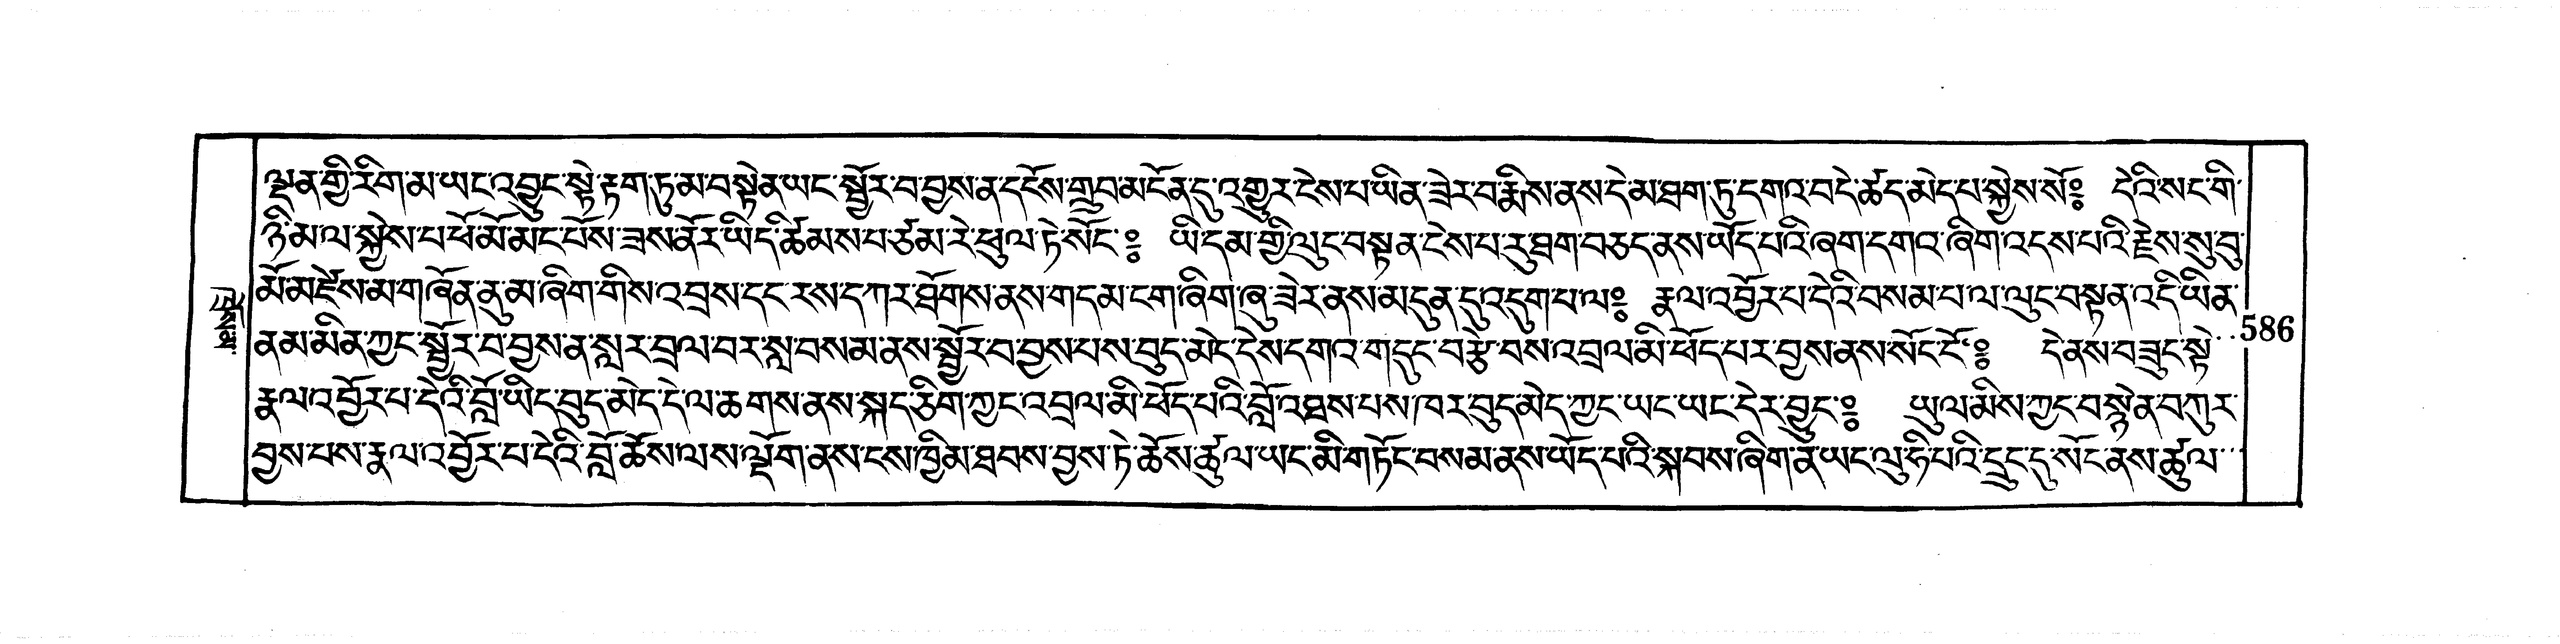 ལྡན་གྱི་རིག་མ་ཡང་འབྱུང་སྟེ་རྟག་ཏུ་མ་བསྟེན་ཡང་སྦྱོར་བ་བྱས་ན་དངོས་གྲུབ་མངོན་དུ་འགྱུར་ངེས་པ་ཡིན་ཟེར་བ་རྨིས་ནས་དེ་མ་ཐག་ཏུ་དགའ་བདེ་ཚད་མེད་པ་སྐྱེས་སོ༔ དེའི་སང་གི་
ཉི་མ་ལ་སྐྱེས་པ་ཕོ་མོ་མང་པོས་ཟས་ནོར་ཡིད་ཚིམས་པ་ཙམ་རེ་ཕུལ་ཏེ་སོང་༔ ཡི་དམ་གྱི་ལུང་བསྟན་ངེས་པ་རུ་ཐག་བཅད་ནས་ཡོད་པའི་ཞག་དགའ་ཞིག་འདས་པའི་རྗེས་སུ་བུ་
མོ་མཛེས་མ་གཞོན་ནུ་མ་ཞིག་གིས་འབྲས་དང་རས་དཀར་ཐོགས་ནས་གདམ་ངག་ཞིག་ཞུ་ཟེར་ནས་མདུན་དུ་འདུག་པ་ལ༔ རྣལ་འབྱོར་པ་དེའི་བསམ་པ་ལ་ལུང་བསྟན་འདི་ཡིན་
ནམ་མིན་ཀྱང་སྦྱོར་བ་བྱས་ན་སླར་བྲལ་བར་སླ་བསམ་ནས་སྦྱོར་བ་བྱས་པས་བུད་མེད་དེས་དགའ་གདུང་བརྩེ་བས་འབྲལ་མི་ཕོད་པར་བྱས་ནས་སོང་ངོ་༔ དེ་ནས་བཟུང་སྟེ་
586
རྣལ་འབྱོར་པ་དེའི་བློ་ཡིད་བུད་མེད་དེ་ལ་ཆགས་ནས་སྐད་ཅིག་ཀྱང་འབྲལ་མི་ཕོད་པའི་བློ་འཐས་པས་ཁར་བུད་མེད་ཀྱང་ཡང་ཡང་དེར་བྱུང་༔ ཡུལ་མིས་ཀྱང་བསྙེན་བཀུར་
བྱས་པས་རྣལ་འབྱོར་པ་དེའི་བློ་ཆོས་ལས་ལྡོག་ནས་ངས་ཁྱིམ་ཐབས་བྱས་ཏེ་ཆོས་ཚུལ་ཡང་མི་གཏོང་བསམ་ནས་ཡོད་པའི་སྐབས་ཞིག་ན་ཡང་ལུ་ཧི་པའི་དྲུང་དུ་སོང་ནས་ཚུལ་